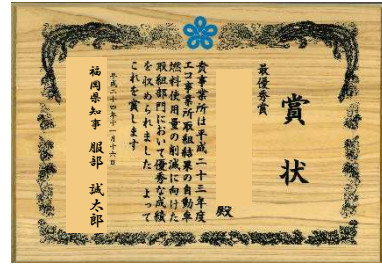 賞状
最優秀賞
殿
貴事業所は平成二十三年度
エコ事業所取組結果の自動車
燃料使用量の削減に向けた
取組部門において優秀な成績
を収められました よって
これを賞します
平成二十四年十一月十六日
福岡県知事 服部 誠太郎